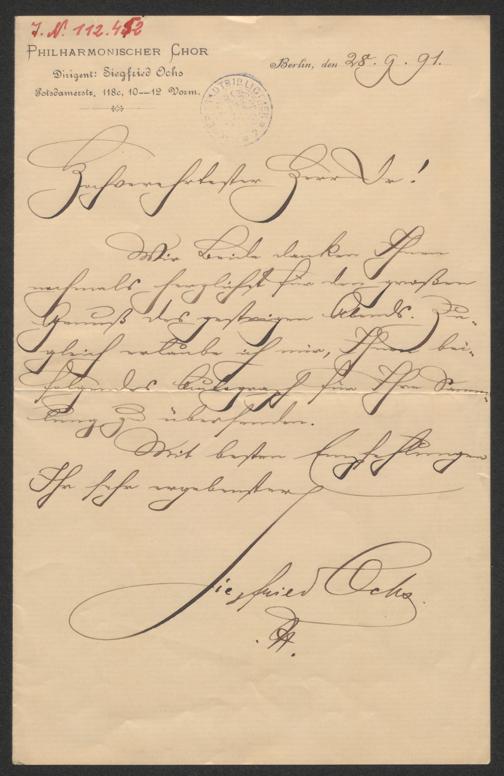 J. N. 112.452
PHILHARMONISCHER CHOR
Dirigent: Siegfried Ochs
Potsdamerstr. 118c, 10—12 Vorm.
Berlin, den 28. 9. 91.
Hochverehrtester Herr Dr!
Wir Beide danken Ihnen
nochmals herzlichst für den großen
Genuß des gestrigen Abends. Zu-
gleich erlaube ich mir, Ihnen bei-
folgendes Autograph für Ihre Samm-
lung zu übersenden.
Mit besten Empfehlungen
Ihr sehr ergebenster
Siegfried Ochs.